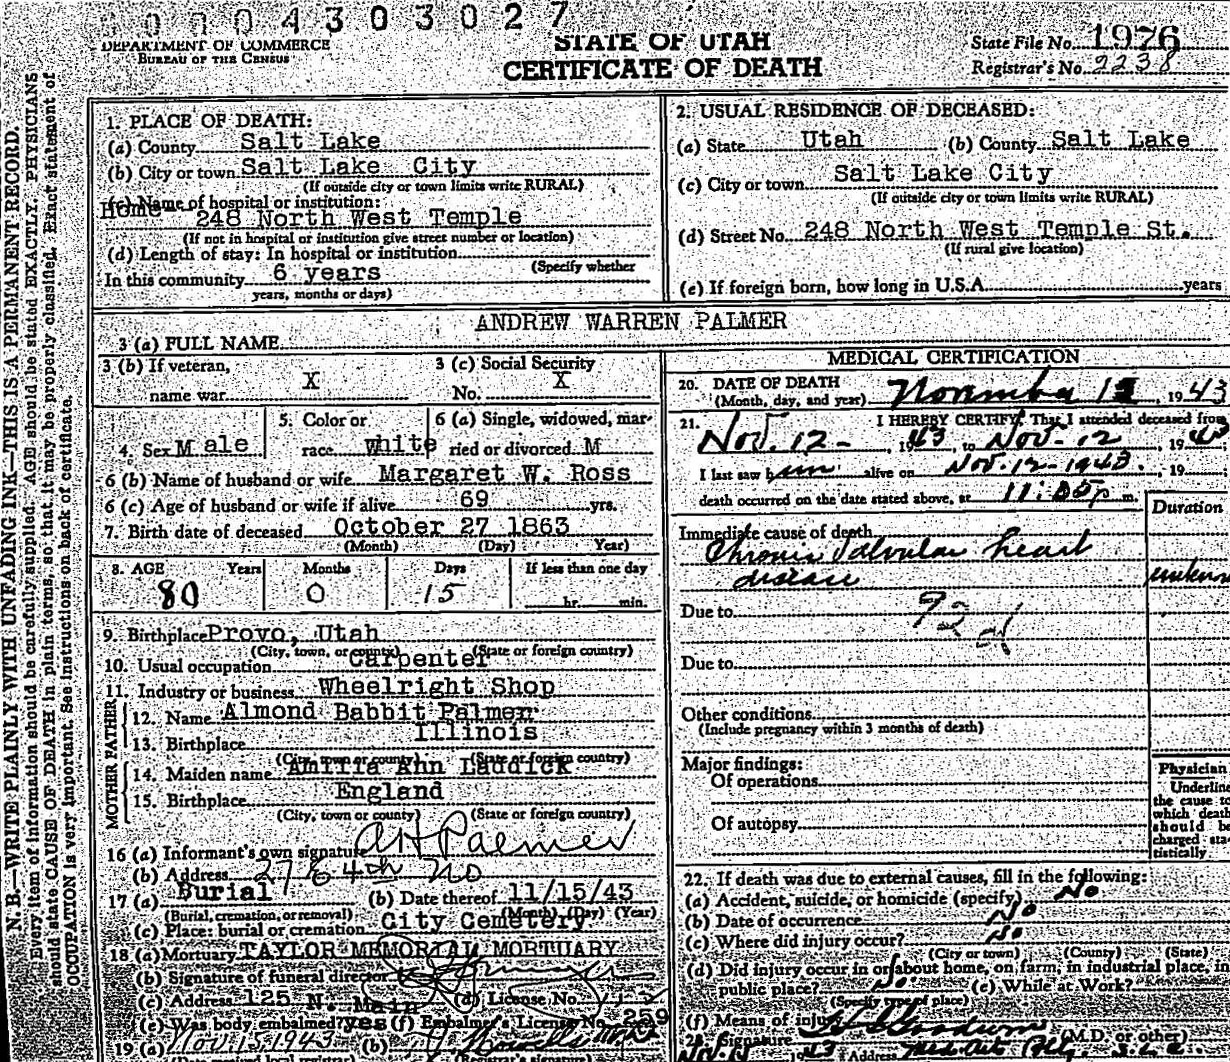 0004303027
DEPARTMENT OF COMMERCE
BUREAU OF THE CENSUS
STATE OF UTAH
CERTIFICATE OF DEATH
State File No. 1976
Registrar's No. 2238
N. B.—WRITE PLAINLY WITH UNFADING INK—THIS IS A PERMANENT RECORD.
Every item of information should be carefully supplied. AGE should be stated EXACTLY. PHYSICIANS
should state CAUSE OF DEATH in plain terms, so that it may be properly classified. Exact statement of
OCCUPATION is very important. See instructions on back of certificate.
1. PLACE OF DEATH:
(a) County Salt Lake
(b) City or town Salt Lake City
(If outside city or town limits write RURAL)
(c) Name of hospital or institution:
Home — 248 North West Temple
(If not in hospital or institution give street number or location)
(d) Length of stay: In hospital or institution
(Specify whether
In this community 6 years
years, months or days)
2. USUAL RESIDENCE OF DECEASED:
(a) State Utah (b) County Salt Lake
(c) City or town Salt Lake City
(If outside city or town limits write RURAL)
(d) Street No. 248 North West Temple St.
(If rural give location)
(e) If foreign born, how long in U.S.A. years
3 (a) FULL NAME ANDREW WARREN PALMER
3 (b) If veteran,
name war X
3 (c) Social Security
No. X
4. Sex Male
5. Color or
race White
6 (a) Single, widowed, mar-
ried or divorced M
6 (b) Name of husband or wife Margaret W. Ross
6 (c) Age of husband or wife if alive 69 yrs.
7. Birth date of deceased October 27 1863
(Month) (Day) Year)
8. AGE Years Months Days If less than one day
80 0 15 hr. min.
9. Birthplace Provo, Utah
(City, town, or county) (State or foreign country)
10. Usual occupation Carpenter
11. Industry or business Wheelright Shop
FATHER
12. Name Almond Babbit Palmer
13. Birthplace Illinois
(City, town or county) (State or foreign country)
MOTHER
14. Maiden name Amilia Ann Laddick
15. Birthplace England
(City, town or county) (State or foreign country)
16 (a) Informant's own signature A H Palmer
(b) Address 27 E 4th No
17 (a) Burial (b) Date thereof 11/15/43
(Burial, cremation, or removal) (Month) (Day) (Year)
(c) Place: burial or cremation City Cemetery
18 (a) Mortuary TAYLOR MEMORIAL MORTUARY
(b) Signature of funeral director
(c) Address 125 N. Main (d) License No.
(e) Was body embalmed? yes (f) Embalmer's License No. 259
19 (a) Nov. 15, 1943 (b)
(Date received local registrar) (Registrar's signature)
MEDICAL CERTIFICATION
20. DATE OF DEATH
(Month, day, and year) 1943
21. I HEREBY CERTIFY, That I attended deceased from
Nov. 12 - , 1943, to Nov. 12 , 1943
I last saw him alive on Nov. 12-1943. , 19
death occurred on the date stated above, at 11:05p m.
Duration
Immediate cause of death
Chronic Valvular heart
disease
Due to 92
Due to
Other conditions
(Include pregnancy within 3 months of death)
Major findings:
Of operations
Of autopsy
Physician
Underline
the cause
which death
should be
charged sta-
tistically
22. If death was due to external causes, fill in the following:
(a) Accident, suicide, or homicide (specify) No
(b) Date of occurrence No
(c) Where did injury occur? No
(City or town) (County) (State)
(d) Did injury occur in or about home, on farm, in industrial place, in
public place? No. (e) While at Work?
(Specify type of place)
(f) Means of injury
Signature (M.D. or other)
Nov. 43 Address